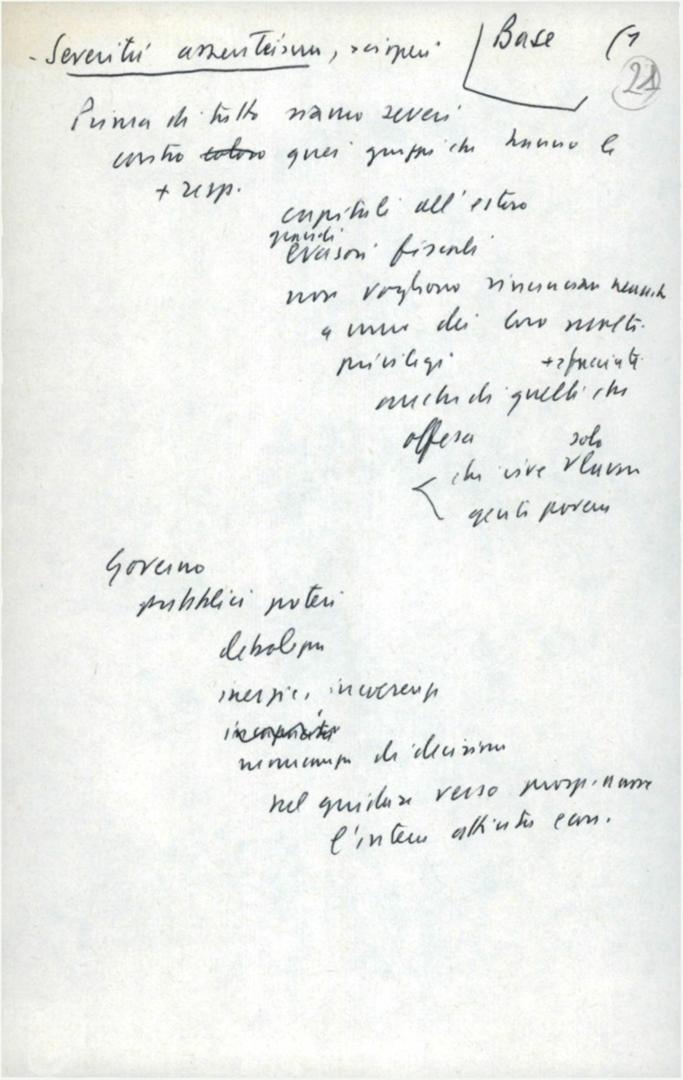 - Severità assenteismo, scioperi
Base
(1
21
Prima di tutto siamo severi
contro coloro quei gruppi che hanno le
+ resp.
capitali all'estero
grandi
evasori fiscali
non vogliono rinunciare neanche
a uno dei loro molti
privilegi
+ sfacciati
anche di quelli che
offesa
solo
chi vive di lavoro
gente povera
Governo
pubblici poteri
debolezza
inerzia, incoerenza
incapacità
mancanza di decisione
nel guidare verso prosp. nuove
l'intera attività econ.